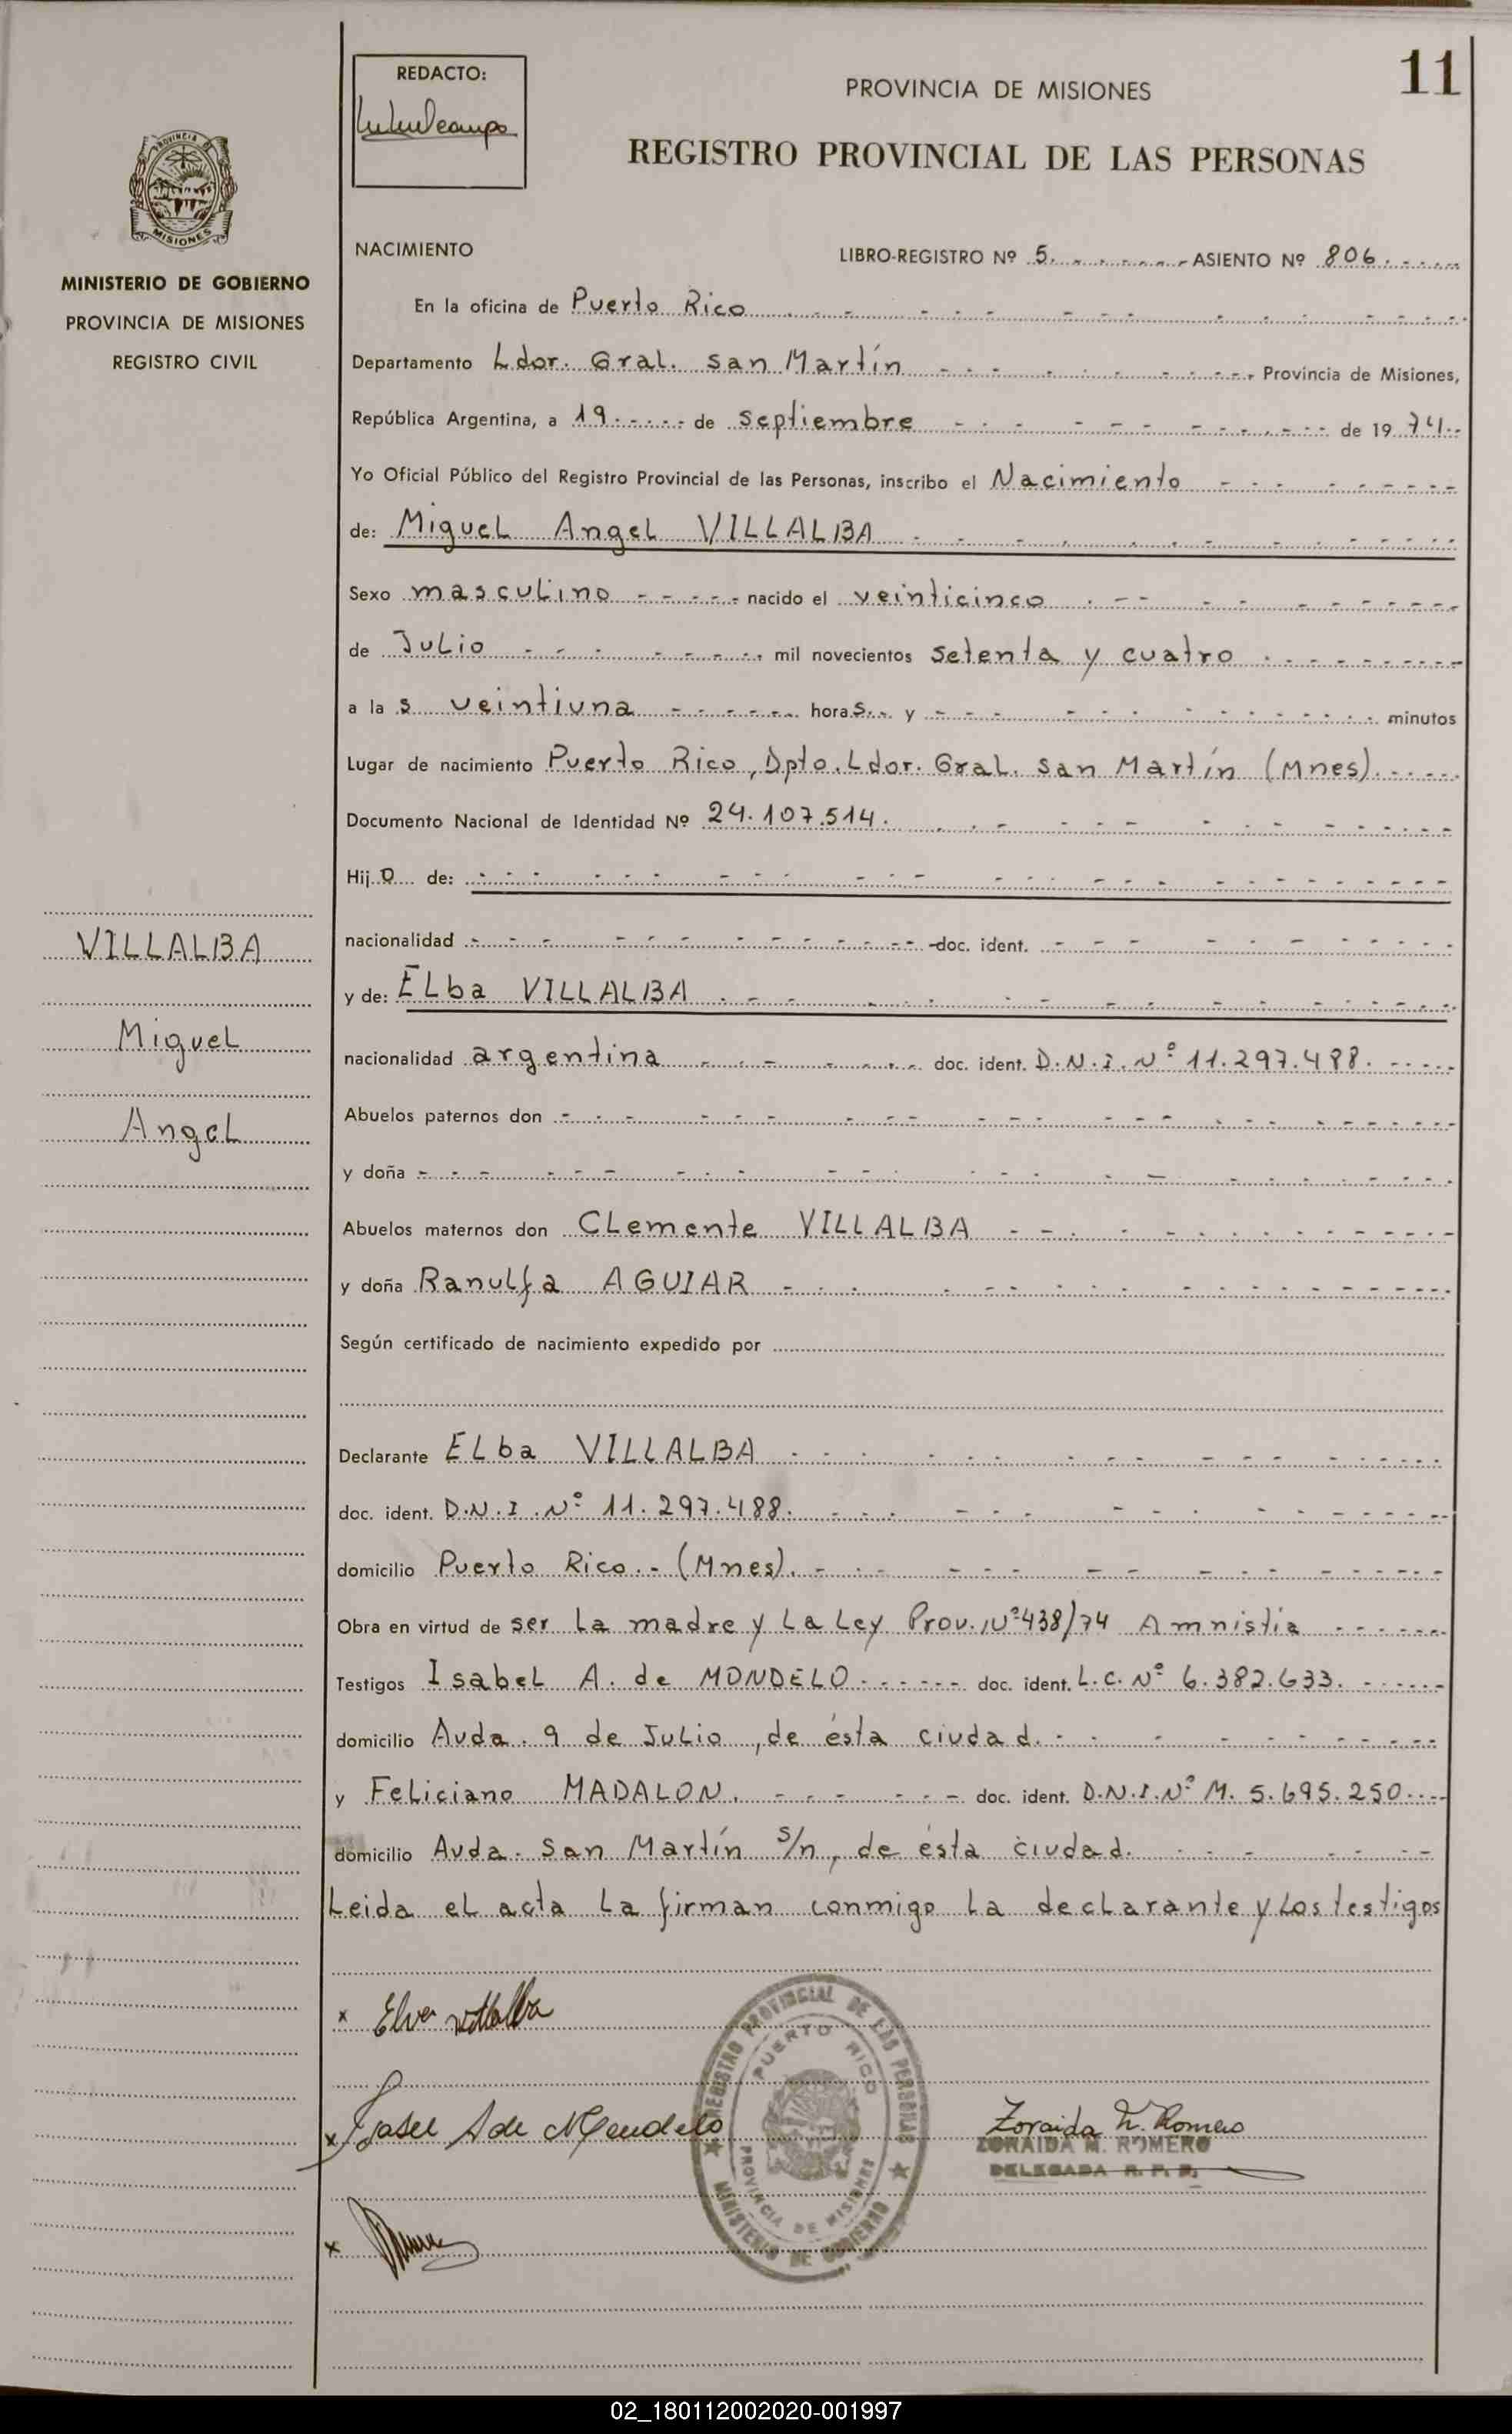 11
REDACTO:
PROVINCIA DE MISIONES
REGISTRO PROVINCIAL DE LAS PERSONAS
MISIONES
MINISTERIO DE GOBIERNO
PROVINCIA DE MISIONES
REGISTRO CIVIL
NACIMIENTO LIBRO-REGISTRO Nº 5. ASIENTO Nº 806.
En la oficina de Puerto Rico
Departamento Ldor. Gral. San Martín Provincia de Misiones,
República Argentina, a 19 de Septiembre de 19 74
Yo Oficial Público del Registro Provincial de las Personas, inscribo el Nacimiento
de: Miguel Angel VILLALBA
Sexo masculino nacido el veinticinco
de Julio mil novecientos setenta y cuatro
a la s veintiuna hora s y minutos
Lugar de nacimiento Puerto Rico, Dpto. Ldor. Gral. San Martín (Mnes).
Documento Nacional de Identidad Nº 24.107.514.
Hij o de:
nacionalidad doc. ident.
y de: Elba VILLALBA
nacionalidad argentina doc. ident. D.N.I. Nº 11.297.488.
Abuelos paternos don
y doña
Abuelos maternos don Clemente VILLALBA
y doña Ranulfa AGUIAR
Según certificado de nacimiento expedido por
VILLALBA
Miguel
Angel
Declarante Elba VILLALBA
doc. ident. D.N.I. Nº 11.297.488.
domicilio Puerto Rico.- (Mnes).
Obra en virtud de ser la madre y la Ley Prov. Nº 438/74 Amnistia
Testigos Isabel A. de MONDELO doc. ident. L.C. Nº 6.382.633.
domicilio Avda. 9 de Julio, de ésta ciudad.
y Feliciano MADALON. doc. ident. D.N.I. Nº M. 5.695.250
domicilio Avda. San Martín s/n, de ésta ciudad.
Leida el acta la firman conmigo la declarante y los testigos
x Elva Villalba
x Isabel A de Mondelo
Zoraida M. Romero
ZORAIDA M. ROMERO
DELEGADA R. P. P.
x
REGISTRO PROVINCIAL DE LAS PERSONAS
PUERTO RICO
PROVINCIA DE MISIONES
MINISTERIO DE GOBIERNO
02_180112002020-001997